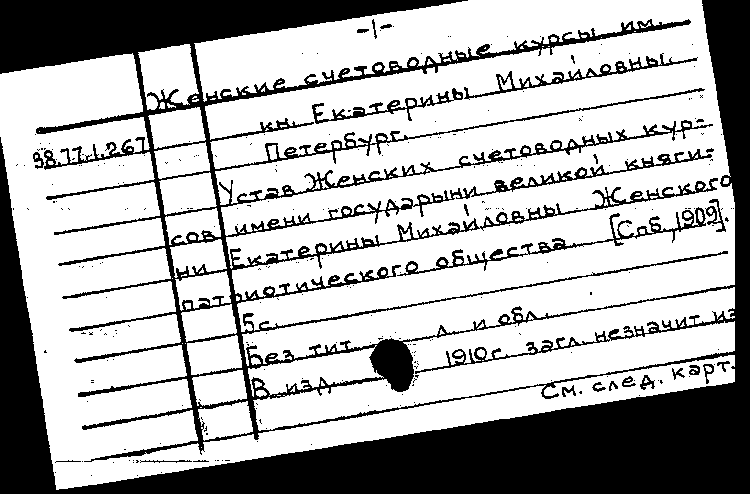 -1-
Женские счетоводные курсы им.
кн. Екатерины Михайловны.
Петербург.
38.77.1.267
Устав Женских счетоводных кур-
сов имени государыни великой княги-
ни Екатерины Михайловны Женского
патриотического общества. [Спб., 1909].
5с.
Без тит. л. и обл.
В изд. 1910г. загл. незначит. из
См. след. карт.